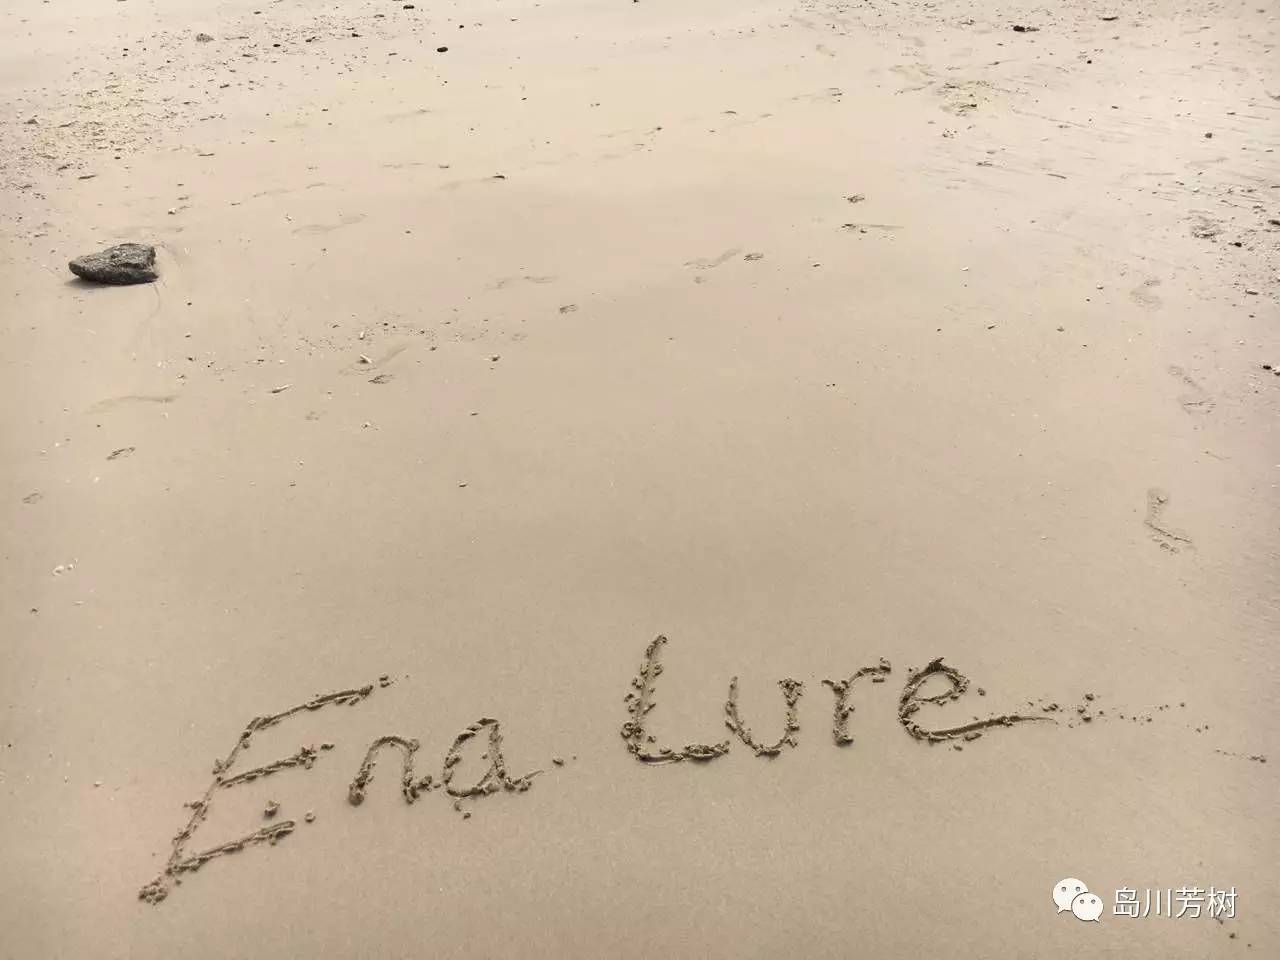 Ena Lure
岛川芳树